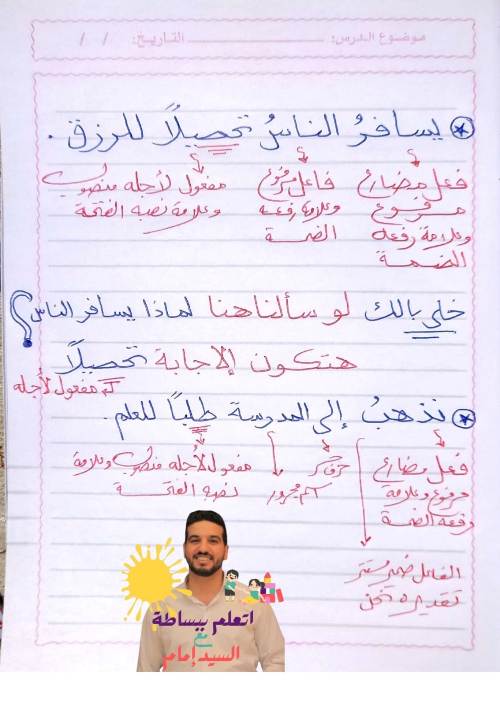 موضوع الدرس: التاريخ: / /
يسافرُ الناسُ تحصيلاً للرزق.
فعل مضارع فاعل مرفوع مفعول لأجله منصوب
مرفوع وعلامة رفعه وعلامة نصبه الفتحة
وعلامة رفعه الضمة
الضمة
خلي بالك لو سألنا هنا لماذا يسافر الناس؟
هتكون الإجابة تحصيلاً
مفعول لأجله
نذهبُ إلى المدرسة طلبًا للعلم.
فعل مضارع حرف جر مفعول لأجله منصوب وعلامة
مرفوع وعلامة اسم مجرور نصبه الفتحة
رفعه الضمة
الفاعل ضمير مستتر
تقديره نحن
اتعلم ببساطة
مع
السيد إمام